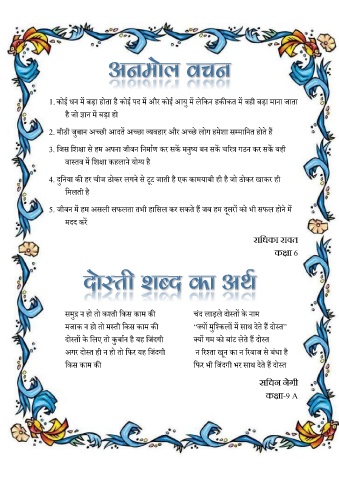 अनमोल वचन
1. कोई धन में बड़ा होता है कोई पद में और कोई आयु में लेकिन हकीकत में वही बड़ा माना जाता
है जो ज्ञान में बड़ा हो
2. मीठी जुबान अच्छी आदतें अच्छा व्यवहार और अच्छे लोग हमेशा सम्मानित होते हैं
3. जिस शिक्षा से हम अपना जीवन निर्माण कर सकें मनुष्य बन सकें चरित्र गठन कर सकें वही
वास्तव में शिक्षा कहलाने योग्य है
4. दुनिया की हर चीज ठोकर लगने से टूट जाती है एक कामयाबी ही है जो ठोकर खाकर ही
मिलती है
5. जीवन में हम असली सफलता तभी हासिल कर सकते हैं जब हम दूसरों को भी सफल होने में
मदद करें
राधिका रावत
कक्षा 6
दोस्ती शब्द का अर्थ
समुद्र न हो तो कश्ती किस काम की
मजाक न हो तो मस्ती किस काम की
दोस्तों के लिए तो कुर्बान है यह जिंदगी
अगर दोस्त ही न हो तो फिर यह जिंदगी
किस काम की
चंद लाइले दोस्तों के नाम
"क्यों मुश्किलों में साथ देते हैं दोस्त"
क्यों गम को बांट लेते हैं दोस्त
न रिश्ता खून का न रिवाज से बंधा है
फिर भी जिंदगी भर साथ देते हैं दोस्त
सचिन नेगी
कक्षा-9 A